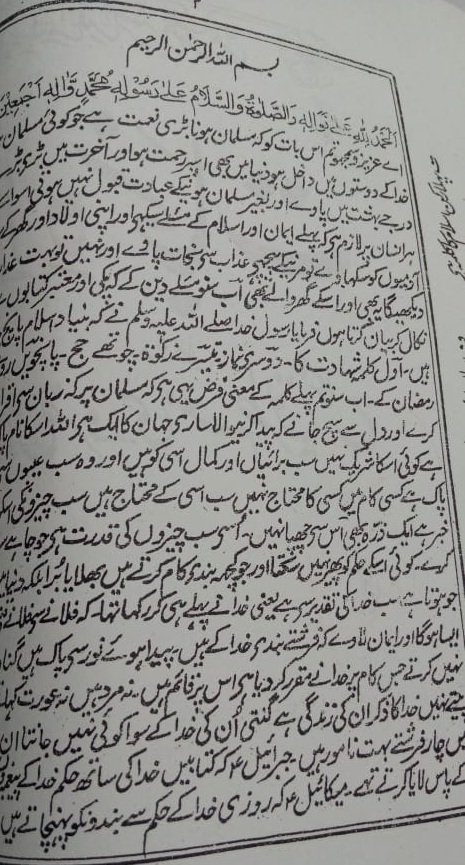 بسم اللہ الرحمٰن الرحیم
اَلْحَمْدُ لِلّٰهِ عَلٰی نَوَالِهٖ وَالصَّلٰوةُ وَالسَّلَامُ عَلٰی رَسُوْلِهٖ مُحَمَّدٍ وَّاٰلِهٖ اَجْمَعِیْنَ
اے عزیزو سمجھو تم اس بات کو کہ مسلمان ہونا بڑی نعمت ہے جو کوئی مسلمان
خدا کے دوستوں میں داخل ہو دنیا میں بھی اسپر رحمت ہو اور آخرت میں بڑی بڑے
درجے بہشت میں پاوے اور بغیر مسلمان ہونیکے عبادت قبول نہیں ہوتی اسواسطے
ہر انسان پر لازم ہی کہ پہلے ایمان اور اسلام کے مسئلے سیکہی اور اپنی اولاد اور گھر کے
آدمیوں کو سکھاوے تو مرنیکے پیچھے عذاب سی نجات پاوے اور نہیں تو بہت عذاب
دیکھیگا یہ بھی اور اسکے گھر والے بھی اب سنو مسئلے دین کے کہ پکی اور معتبر کتابوں سے
نکال کر بیان کرتا ہوں فرمایا رسول خدا صلے اللہ علیہ وسلم نے کہ بنیاد اسلام پانچ
ہیں۔ اول کلمہ شہادت کا۔ دوسری نماز تیسرے زکوٰۃ۔ چوتھے حج۔ پانچویں روزے
رمضان کے۔ اب سنو تم پہلے کلمہ کے معنی فرض یہی ہر کہ مسلمان پر کہ زبان سی اقرار
کرے اور دل سے سچ جانے کہ پیدا کرنیوالا ساری جہان کا ایک ہی اللہ اسکا نام پاک
ہے کوئی اسکا شریک نہیں سب بڑائیاں اور کمال اسی کو ہیں اور وہ سب عیبوں سے
پاک ہے کسی کام میں کسی کا محتاج نہیں سب اسی کے محتاج ہیں سب چیز ونکی اسکو
خبر ہے ایک ذرّہ بھی اس سی چھپا نہیں۔ اُسی سب چیزوں کی قدرت ہی جو چاہے سو
کرے۔ کوئی اسکے حکم کو پھیر نہیں سکتا اور جو کچھ بندی کام کرتے ہیں بھلا یا بُرا بلکہ دنیا میں
جو ہوتا ہے سب خدا کی تقدیر سی ہے یعنی خدا نے پہلے ہی کر رکھا تھا۔ کہ فلانے سی فلانے
ایسا ہوگا اور ایمان لاوے کہ فرشتے بندی خدا کے ہیں۔ پیدا ہوئے نور سی پاک ہیں گناہ
نہیں کرتے جس کام پر خدا نے مقرر کر دیا ہی اس پر قائم ہیں۔ نہ مرد ہیں نہ عورت
خدا کا ذکر ان کی زندگی ہے گنتی اُن کی خدا کے سوا کوئی نہیں جانتا ان
میں چار فرشتے بہت نامور ہیں۔ جبرائیلؑ کہ کتابیں خدا کی ساتھ حکم خدا کے پیغمبروں
کے پاس لایا کرتے تھے۔ میکائیلؑ کہ روزی خدا کے حکم سے بندونکو پہنچاتے ہیں